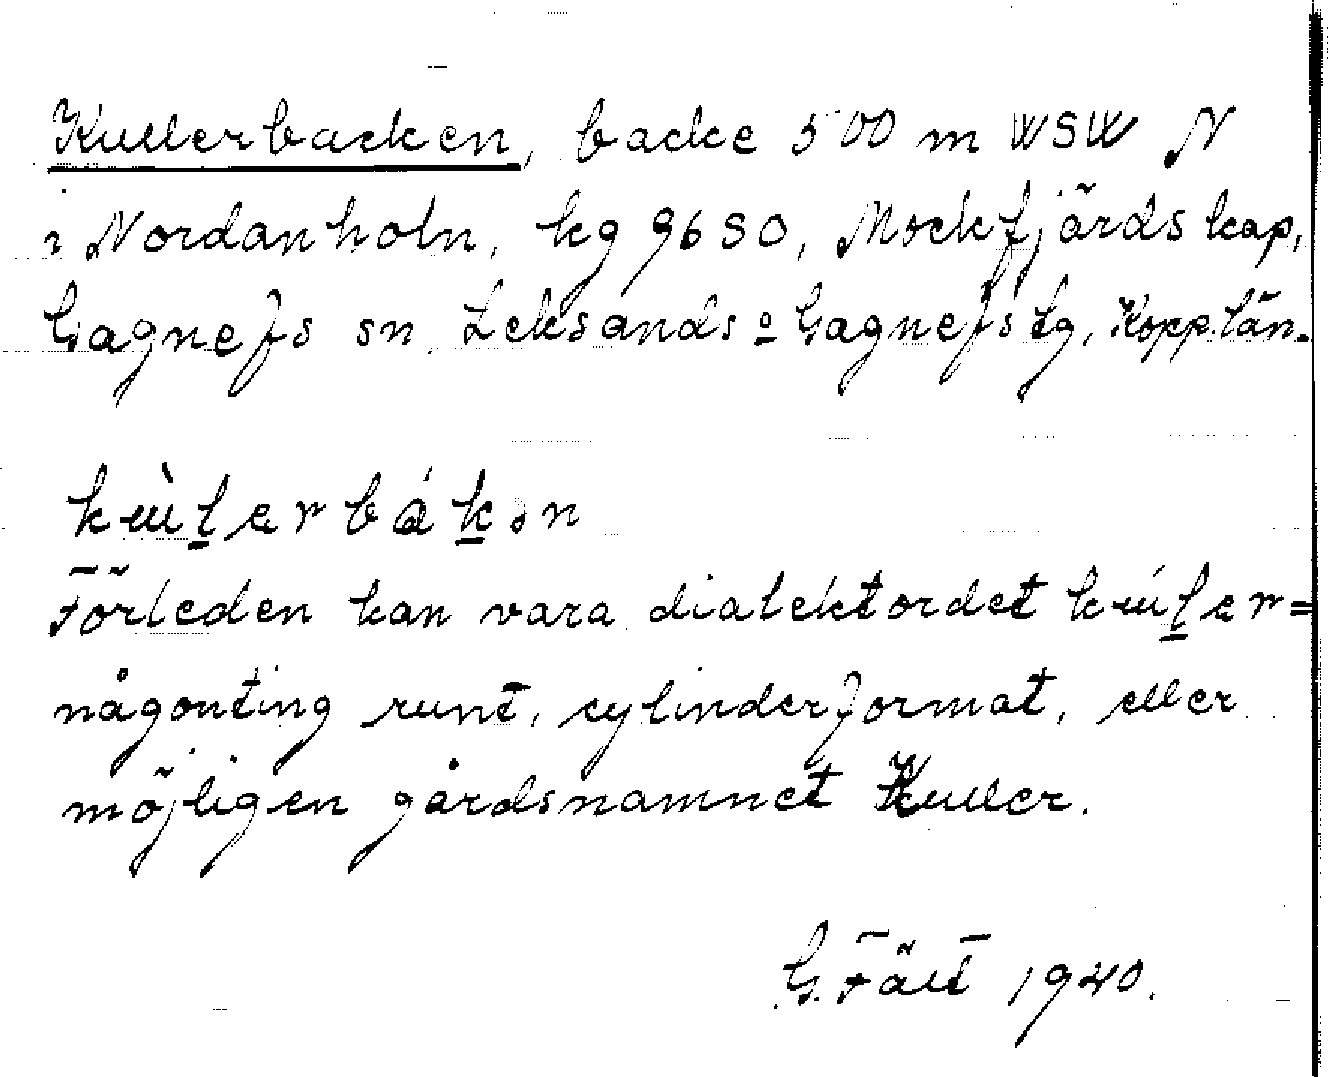 Kullerbacken, backe 500 m WSW N
i Nordanholn, kg 9680, Mockfjärds kap,
Gagnefs sn. Leksands o Gagnefs tg, Kopp.län.
kɯ̀l̠erbák̠ən
Förleden kan vara dialektordet kɯ́l̠er=
någonting runt, cylinderformat, eller
möjligen gårdsnamnet Kuller.
G. Fält 1940.